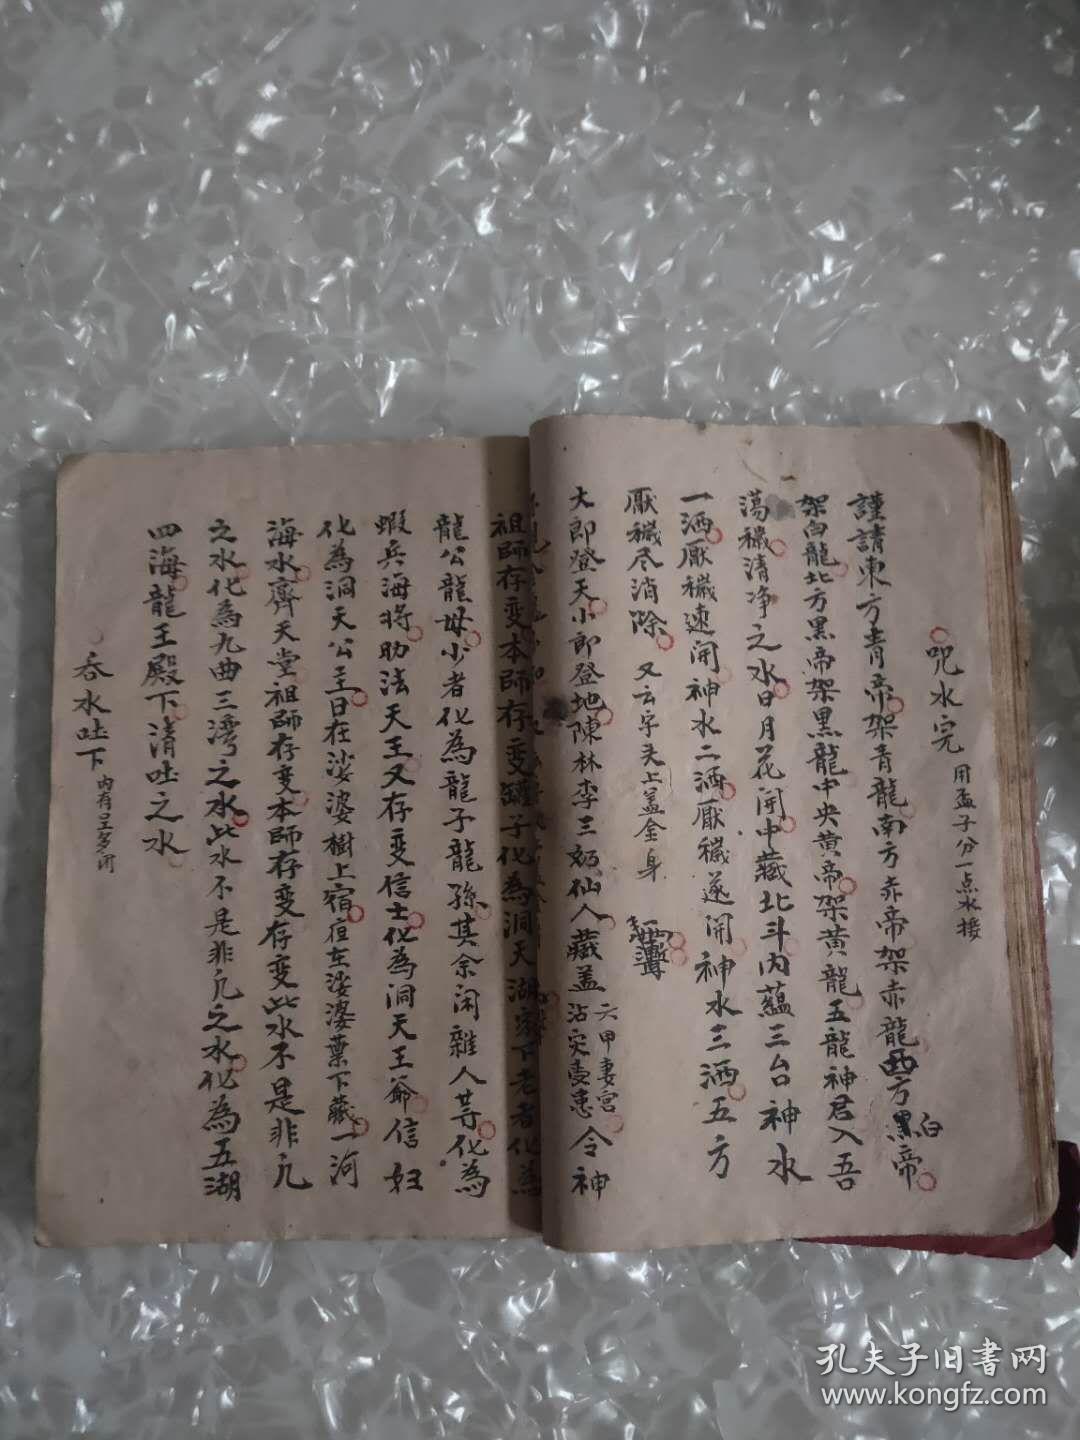 咒水完 用盂子分一点水接
謹請東方青帝架青龍南方赤帝架赤龍西方黑帝
白
架白龍北方黑帝架黑龍中央黄帝架黄龍五龍神君入吾
蕩穢清净之水日月花開中藏北斗内蘊三台神水
一洒厭穢速開神水二洒厭穢遂開神水三洒五方
厭穢尽消除 又云字头上盖金身
大郎登天小郎登地陳林李三奶仙人藏盖
六甲妻宮
令神
祖師存变本師存变 化為洞天湖 下老者化為
龍公龍母少者化為龍子龍孫其余闲雜人等化為
蝦兵海将助法天王又存变信士化為洞天王爺信妇
化為洞天公主日在娑婆樹上宿但在娑婆葉下藏一河
海水齊天堂祖師存变本師存变存变此水不是非凡
之水化為九曲三湾之水此水不是非凡之水化為五湖
四海龍王殿下清吐之水
吞水吐下
孔夫子旧書网
www.kongfz.com